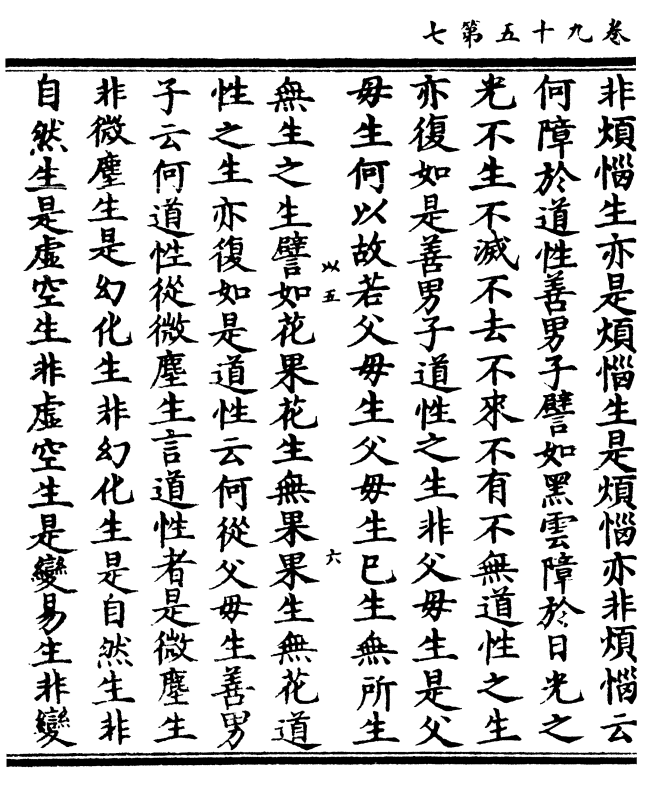 卷九十五第七
非煩惱生亦是煩惱生是煩惱亦非煩惱云
何障於道性善男子譬如黑雲障於日光之
光不生不滅不去不來不有不無道性之生
亦復如是善男子道性之生非父母生是父
母生何以故若父母生父母生巳生無所生
㕥五 六
無生之生譬如花果花生無果果生無花道
性之生亦復如是道性云何從父母生善男
子云何道性從微塵生言道性者是微塵生
非微塵生是幻化生非幻化生是自然生非
自然生是虛空生非虛空生是變易生非變